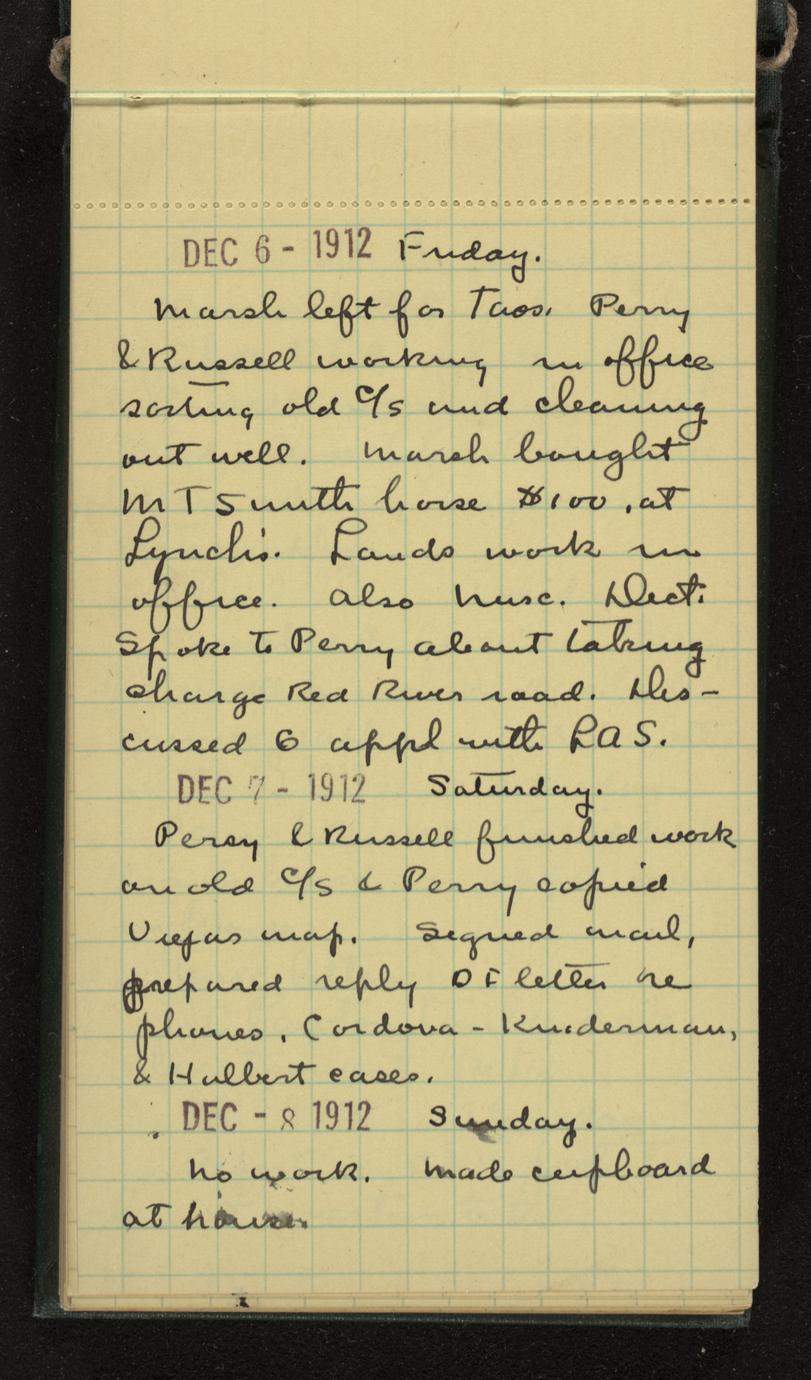 DEC 6 - 1912 Friday.
Marsh left for Taos. Perry
& Russell working in office
sorting old C/s and cleaning
out well. Marsh bought
M T Smith horse $100, at
Lynch's. Lands work in
office. Also Misc. Dict.
Spoke to Perry about taking
charge Red River road. Dis-
cussed 6 appl with RAS.
DEC 7 - 1912 Saturday.
Perry & Russell finished work
on old C/s & Perry copied
map. Signed mail,
prepared reply DF letter re
phones, Cordova - Kinderman,
& Hulbert cases.
DEC - 8 1912 Sunday.
No work. Made cupboard
at house.